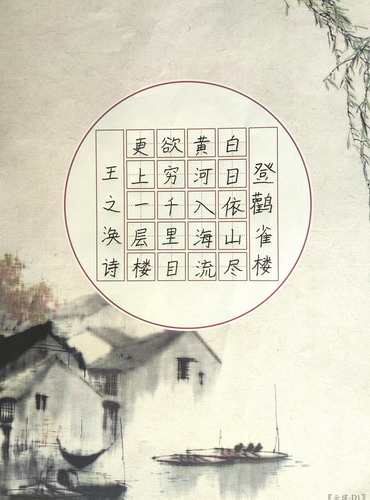 登鹳雀楼
白日依山尽
黄河入海流
欲穷千里目
更上一层楼
王之涣诗